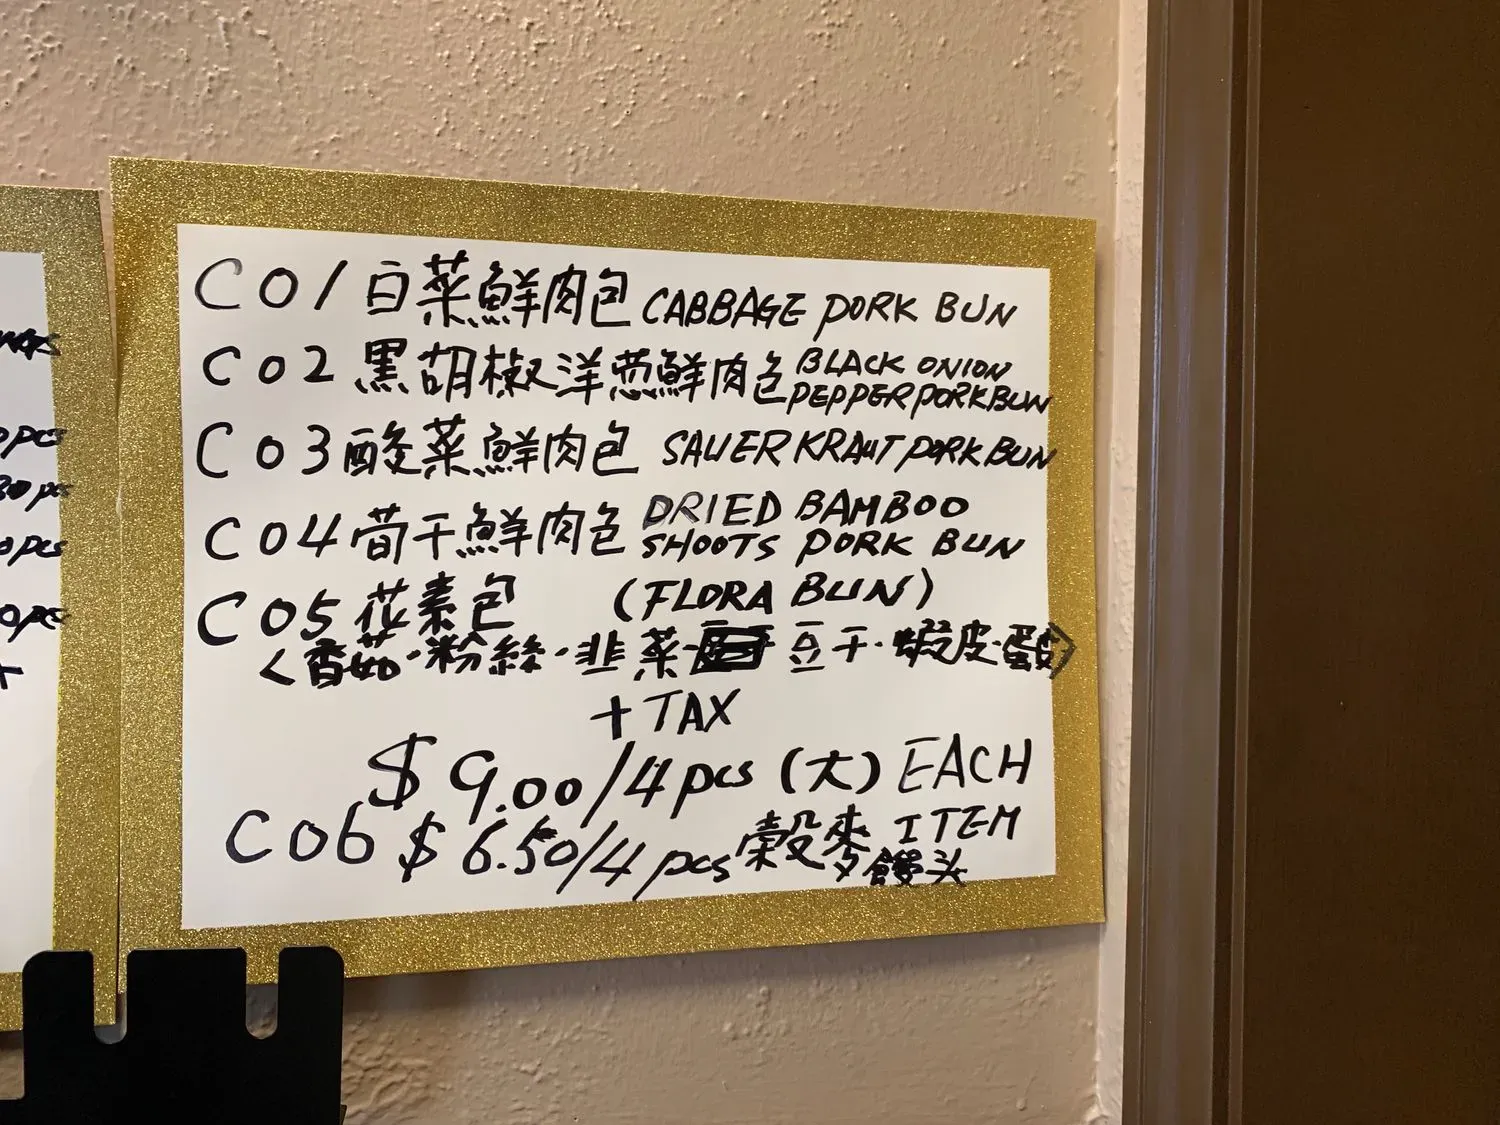 C01 白菜鮮肉包 CABBAGE PORK BUN
C02 黑胡椒洋葱鮮肉包 BLACK ONION
PEPPER PORK BUN
C03 酸菜鮮肉包 SAUERKRAUT PORK BUN
C04 荀干鮮肉包 DRIED BAMBOO
SHOOTS PORK BUN
C05 花素包 (FLORA BUN)
<香菇·粉絲·韭菜 豆干·蝦皮·蛋>
+ TAX
$9.00/4pcs (大) EACH
ITEM
C06 $6.50/4pcs 穀麥
饅头
pcs
30pcs
0pcs
0pcs